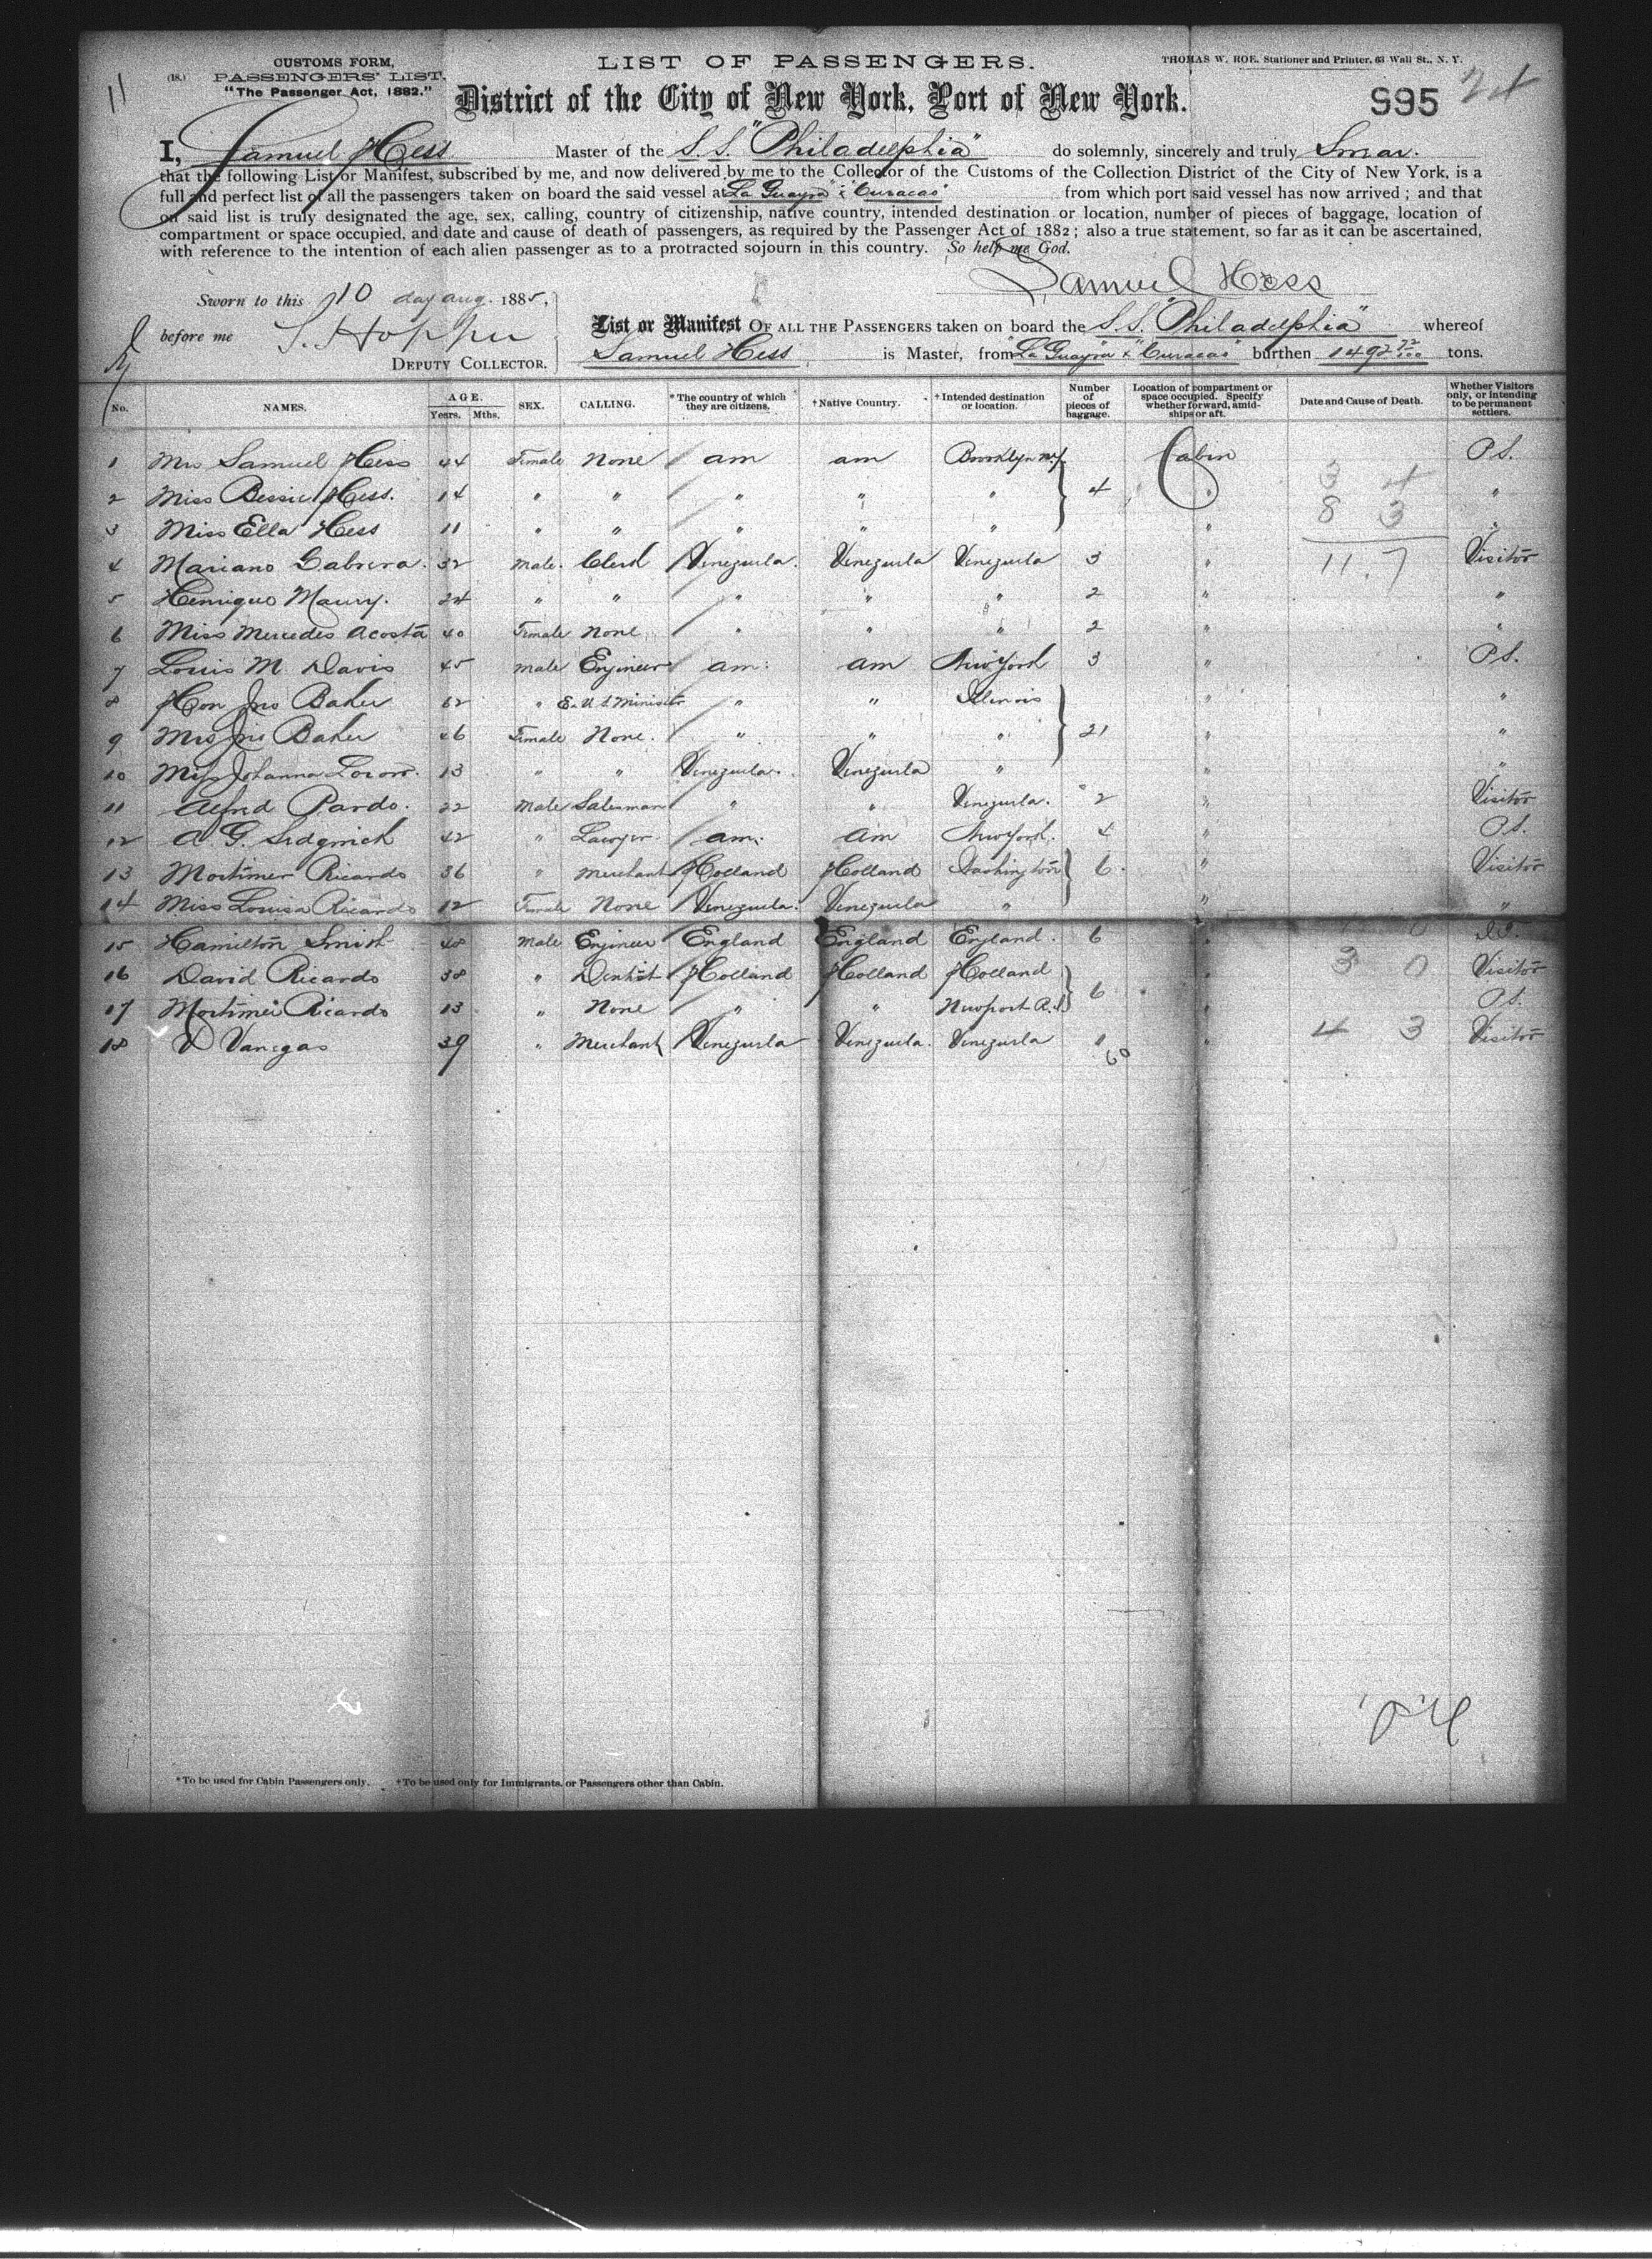 11
(18.) CUSTOMS FORM,
PASSENGERS' LIST.
"The Passenger Act, 1882."
LIST OF PASSENGERS.
THOMAS W. ROE, Stationer and Printer, 63 Wall St., N. Y.
District of the City of New York, Port of New York.
995 24
I, Samuel Hess Master of the S.S. "Philadelphia" do solemnly, sincerely and truly Swear.
that the following List or Manifest, subscribed by me, and now delivered by me to the Collector of the Customs of the Collection District of the City of New York, is a
full and perfect list of all the passengers taken on board the said vessel at La Guayra & "Curacao" from which port said vessel has now arrived ; and that
on said list is truly designated the age, sex, calling, country of citizenship, native country, intended destination or location, number of pieces of baggage, location of
compartment or space occupied, and date and cause of death of passengers, as required by the Passenger Act of 1882 ; also a true statement, so far as it can be ascertained,
with reference to the intention of each alien passenger as to a protracted sojourn in this country. So help me God.
Samuel Hess
Sworn to this 10 day aug. 1885,
before me S. Hopper
DEPUTY COLLECTOR.
List or Manifest OF ALL THE PASSENGERS taken on board the S.S. "Philadelphia" whereof
Samuel Hess is Master, from "La Guayra" & "Curacao" burthen 1492 72/100 tons.
No. NAMES. AGE. Years. Mths. SEX. CALLING. *The country of which they are citizens. †Native Country. †Intended destination or location. Number of pieces of baggage. Location of compartment or space occupied. Specify whether forward, amidships or aft. Date and Cause of Death. Whether Visitors only, or intending to be permanent settlers.
1 Mrs Samuel Hess 44 Female None am am Brooklyn N.Y. Cabin P.S.
2 Miss Bessie Hess. 14 " " " " " 4 " 3 4 "
3 Miss Ella Hess 11 " " " " " " 8 3 "
4 Mariano Cabrera. 32 Male. Clerk Venezuela. Venezuela Venezuela 3 " 11. 7 Visitor
5 Henrique Maury. 24 " " " " " 2 " "
6 Miss Mercedes Acosta 40 Female None " " " 2 " "
7 Louis M. Davis 45 Male Engineer am. am New York 3 " P.S.
8 Hon Jno Baker 62 " E. U.S Minister " " Illinois " "
9 Mrs Jno Baker 46 Female None. " " " 21 " "
10 Miss Johanna 13 " " Venezuela. Venezuela " " "
11 Alfred Pardo. 22 Male Salesman " " Venezuela. 2 " Visitor
12 A. G. Sedgwick 42 " Lawyer am. am New York. 4 " P.S.
13 Mortimer Ricardo 36 " Merchant Holland Holland Washington 6 " Visitor
14 Miss Louisa Ricardo 12 Female None Venezuela. Venezuela " " "
15 Hamilton Smith 48 Male Engineer England England England. 6 "
16 David Ricardo 38 " Dentist Holland Holland Holland " 3 0 Visitor
17 Mortimer Ricardo 13 " None " " Newport R.I. 6 " P.S.
18 V Vanegas 39 " Merchant Venezuela Venezuela. Venezuela " " 4 3 Visitor
60
*To be used for Cabin Passengers only. †To be used only for Immigrants, or Passengers other than Cabin.